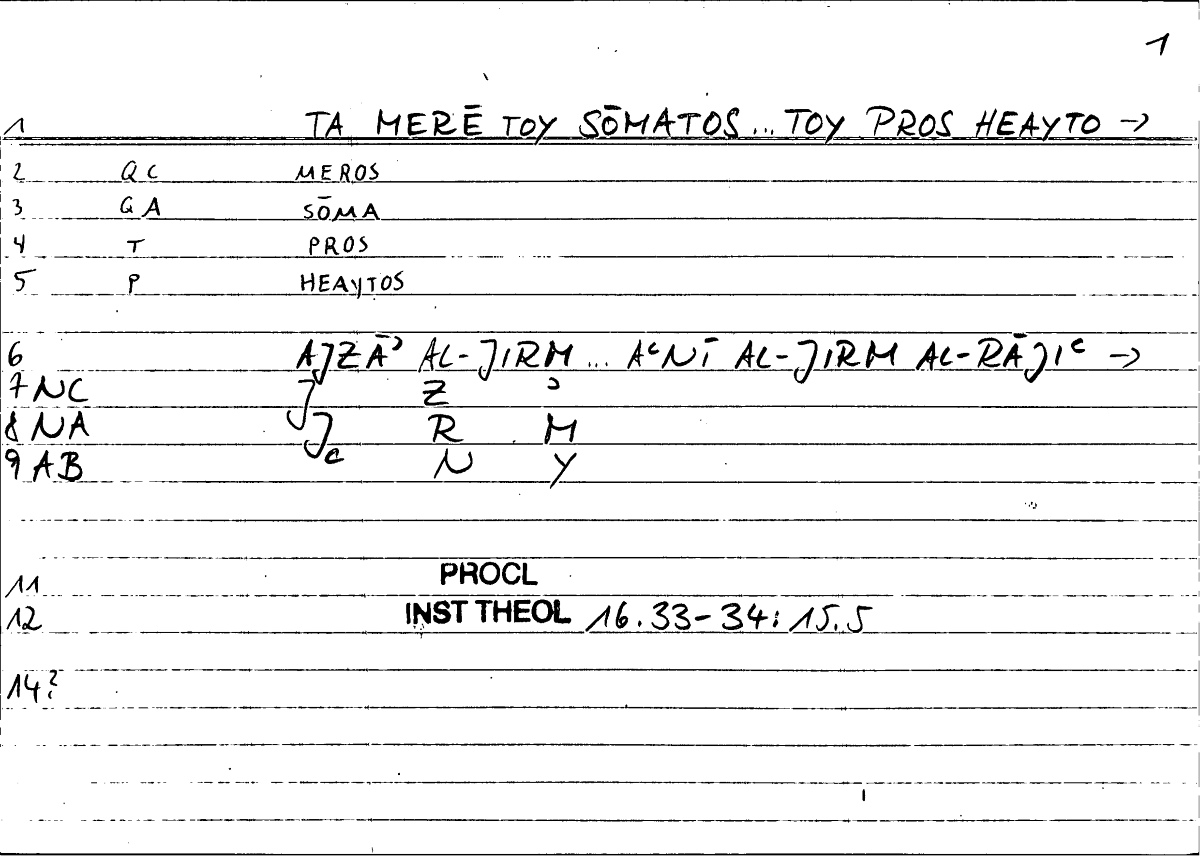 1
1 TA MERĒ TOY SŌMATOS... TOY PROS HEAYTO →
2 QC MEROS
3 GA SŌMA
4 T PROS
5 P HEAYTOS
6 AJZĀʾ AL-JIRM... AʿNĪ AL-JIRM AL-RĀJIʿ →
7 NC J Z ʾ
8 NA J R M
9 AB ʿ N Y
11 PROCL
12 INST THEOL 16.33-34: 15.5
14?